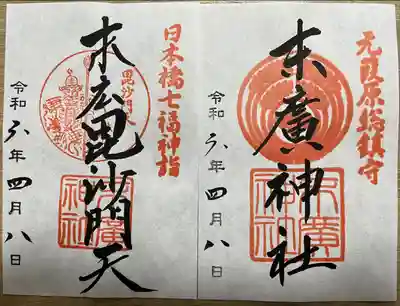 元葭原総鎮守
末廣神社
末廣神社
令和六年四月八日
日本橋七福神詣
毘沙門天
末広毘沙門天
末廣神社
令和六年四月八日